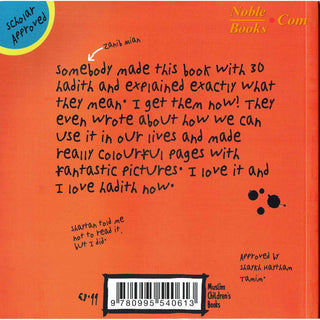 Scholar
Approved
Noble
Books.Com
Zanib Mian
Somebody made this book with 30
hadith and explained exactly what
they mean. I get them now! They
even wrote about how we can
use it in our lives and made
really colourful pages with
fantastic pictures. I love it and
I love hadith now.
Shaytan told me
not to read it,
but I did.
Approved by
Shaykh Haytham
Tamim.
Muslim
Children's
Books
9 780995 540613